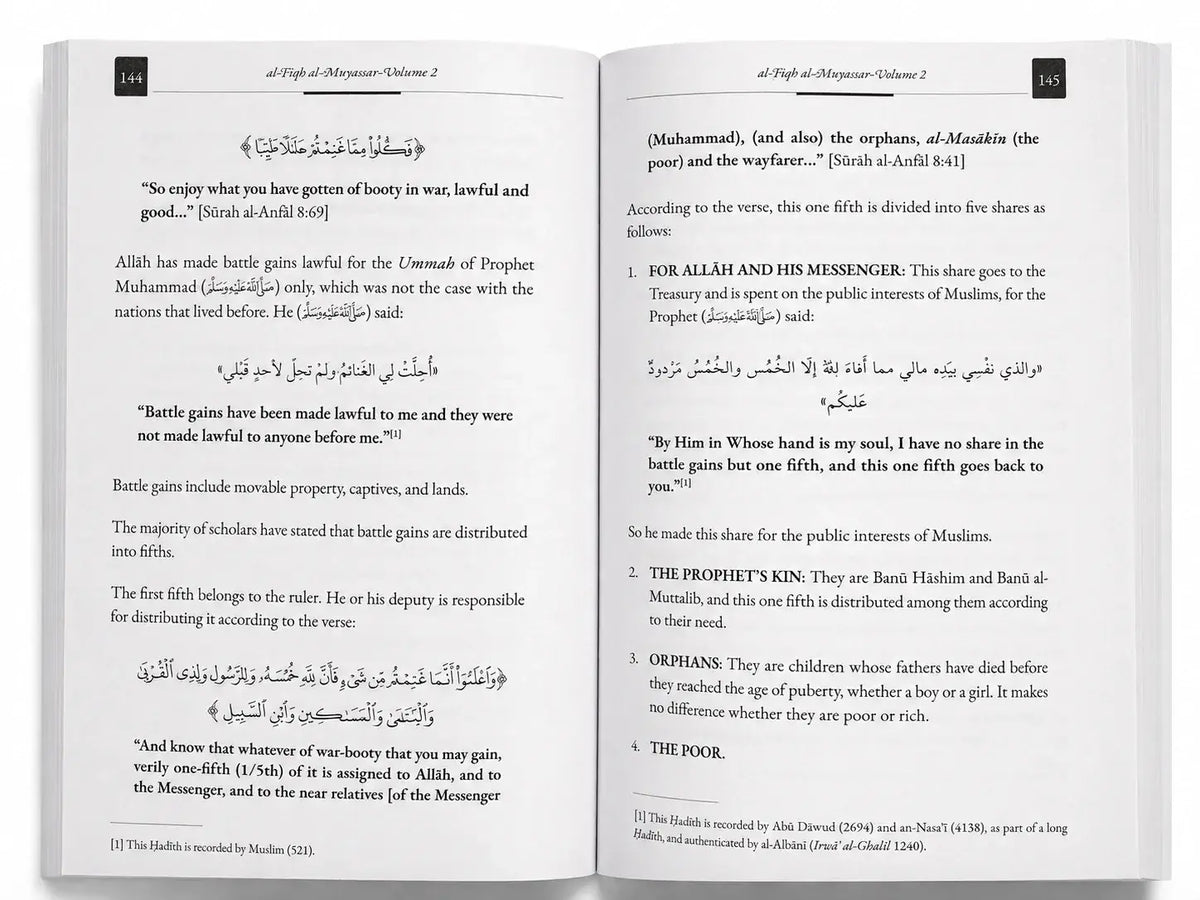 144
al-Fiqh al-Muyassar-Volume 2
﴿فَكُلُوا۟ مِمَّا غَنِمْتُمْ حَلَـٰلًا طَيِّبًا﴾
“So enjoy what you have gotten of booty in war, lawful and
good...” [Sūrah al-Anfâl 8:69]
Allāh has made battle gains lawful for the Ummah of Prophet
Muhammad (صَلَّىٰاللَّهُعَلَيْهِوَسَلَّمَ) only, which was not the case with the
nations that lived before. He (صَلَّىٰاللَّهُعَلَيْهِوَسَلَّمَ) said:
«أُحِلَّتْ لِي الغَنائمُ ولمْ تحلّ لأحدٍ قَبْلي»
“Battle gains have been made lawful to me and they were
not made lawful to anyone before me.”[1]
Battle gains include movable property, captives, and lands.
The majority of scholars have stated that battle gains are distributed
into fifths.
The first fifth belongs to the ruler. He or his deputy is responsible
for distributing it according to the verse:
﴿وَٱعْلَمُوٓا۟ أَنَّمَا غَنِمْتُم مِّن شَىْءٍ فَأَنَّ لِلَّهِ خُمُسَهُۥ وَلِلرَّسُولِ وَلِذِى ٱلْقُرْبَىٰ
وَٱلْيَتَـٰمَىٰ وَٱلْمَسَـٰكِينِ وَٱبْنِ ٱلسَّبِيلِ﴾
“And know that whatever of war-booty that you may gain,
verily one-fifth (1/5th) of it is assigned to Allāh, and to
the Messenger, and to the near relatives [of the Messenger
[1] This Ḥadīth is recorded by Muslim (521).
al-Fiqh al-Muyassar-Volume 2
145
(Muhammad), (and also) the orphans, al-Masākīn (the
poor) and the wayfarer...” [Sūrāh al-Anfâl 8:41]
According to the verse, this one fifth is divided into five shares as
follows:
1. FOR ALLĀH AND HIS MESSENGER: This share goes to the
Treasury and is spent on the public interests of Muslims, for the
Prophet (صَلَّىٰاللَّهُعَلَيْهِوَسَلَّمَ) said:
«والذي نفْسِي بيَدِه مالي مما أفاءَ إلّا الخُمُس والخُمُسُ مَرْدودٌ
عَليكُم»
“By Him in Whose hand is my soul, I have no share in the
battle gains but one fifth, and this one fifth goes back to
you.”[1]
So he made this share for the public interests of Muslims.
2. THE PROPHET’S KIN: They are Banū Hāshim and Banū al-
Muttalib, and this one fifth is distributed among them according
to their need.
3. ORPHANS: They are children whose fathers have died before
they reached the age of puberty, whether a boy or a girl. It makes
no difference whether they are poor or rich.
4. THE POOR.
[1] This Ḥadīth is recorded by Abū Dāwud (2694) and an-Nasa’ī (4138), as part of a long
Ḥadīth, and authenticated by al-Albānī (Irwā’ al-Ghalīl 1240).